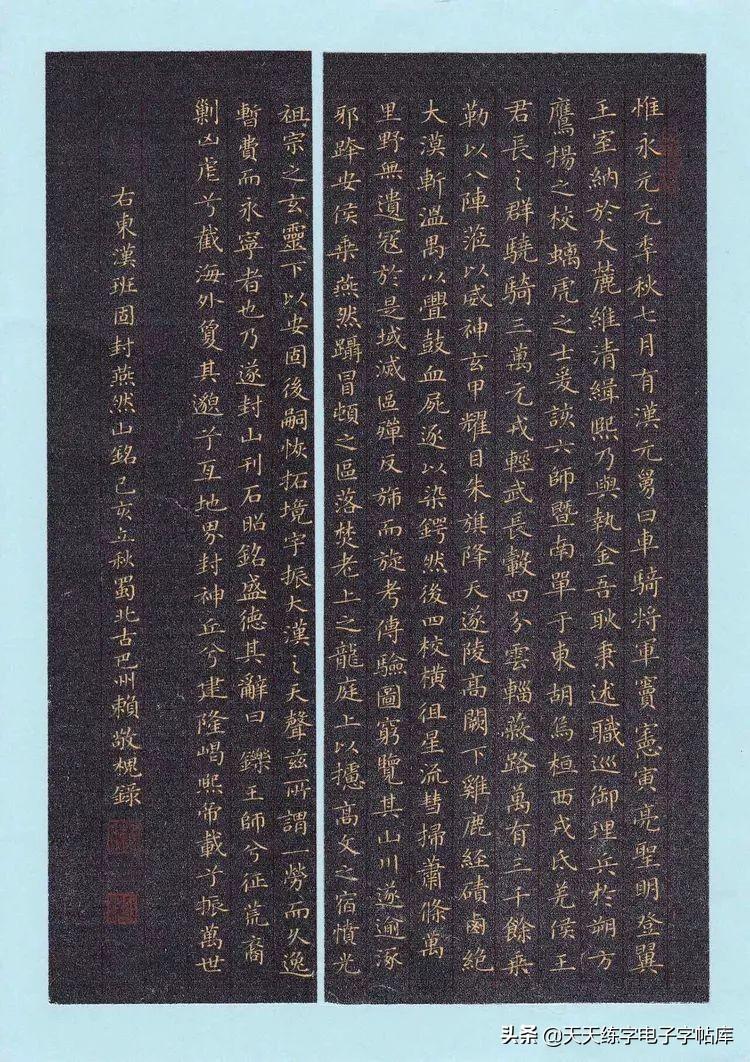 惟永元元年秋七月有漢元舅曰車騎將軍竇憲寅亮聖明登翼
王室納於大麓維清緝熙乃與執金吾耿秉述職巡御理兵於朔方
鷹揚之校螭虎之士爰該六師暨南單于東胡烏桓西戎氐羌侯王
君長之群驍騎三萬元戎輕武長轂四分雲輜蔽路萬有三千餘乘
勒以八陣蒞以威神玄甲耀目朱旗降天遂陵高闕下雞鹿經磧鹵絕
大漠斬溫禺以釁鼓血屍逐以染鍔然後四校橫徂星流彗掃蕭條萬
里野無遺寇於是域滅區殫反旆而旋考傳驗圖窮覽其山川遂逾涿
邪跨安侯乘燕然躡冒頓之區落焚老上之龍庭上以攄高文之宿憤光
祖宗之玄靈下以安固後嗣恢拓境宇振大漢之天聲茲所謂一勞而久逸
暫費而永寧者也乃遂封山刊石昭銘盛德其辭曰 鑠王師兮征荒裔
剿凶虐兮截海外夐其邈兮亙地界封神丘兮建隆嵑熙帝載兮振萬世
右東漢班固封燕然山銘己亥立秋蜀北古巴州賴敬槐錄
头条 @天天练字电子字帖库